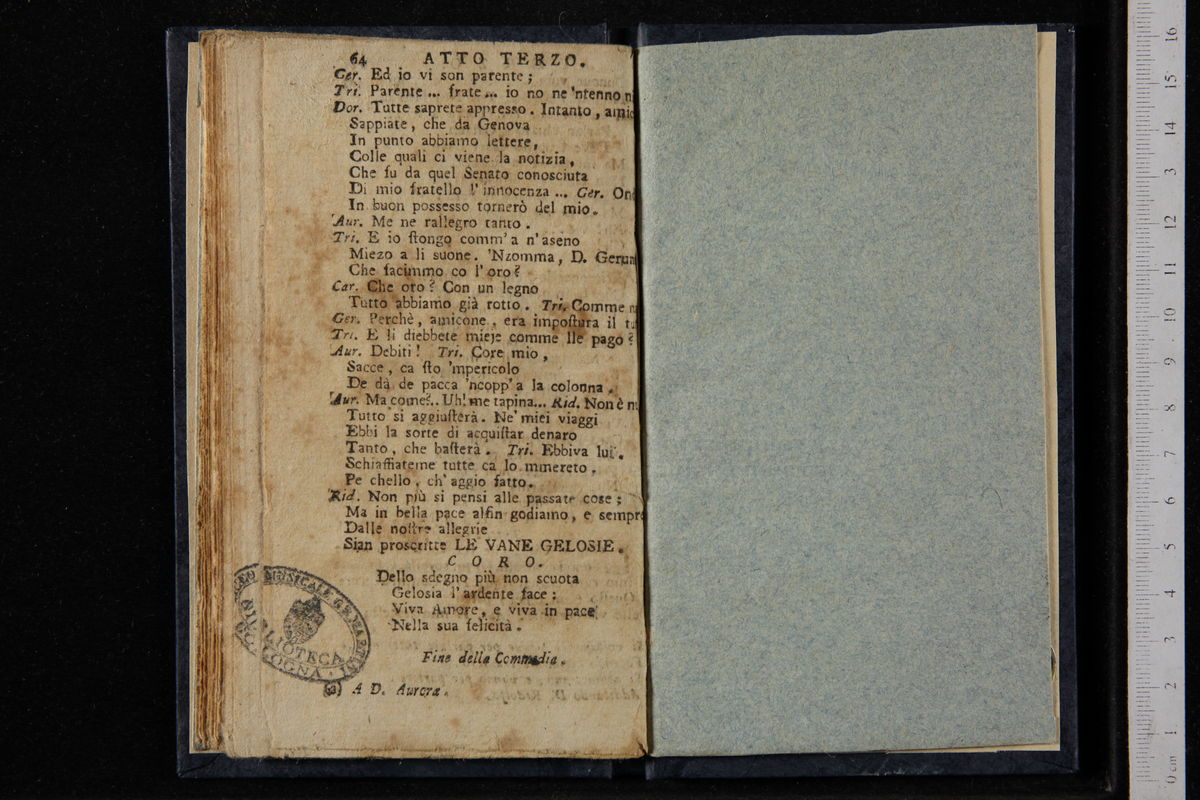 64 ATTO TERZO.
Ger. Ed io vi son parente;
Tri. Parente ... frate ... io no ne 'ntenno
Dor. Tutte saprete appresso. Intanto,
Sappiate, che da Genova
In punto abbiamo lettere,
Colle quali ci viene la notizia,
Che fu da quel Senato conosciuta
Di mio fratello l'innocenza ... Ger.
In buon possesso tornerò del mio.
Aur. Me ne rallegro tanto.
Tri. E io ſtongo comm' a n'aseno
Miezo a li suone. 'Nzomma, D.
Che facimmo co l'oro?
Car. Che oro? Con un legno
Tutto abbiamo già rotto. Tri. Comme
Ger. Perchè, amicone, era impoſtura il
Tri. E li diebbete mieje comme lle pago?
Aur. Debiti! Tri. Core mio,
Sacce, ca ſto 'mpericolo
De dà de pacca 'ncopp' a la colonna.
Aur. Ma come?.. Uh! me tapina... Rid. Non è
Tutto si aggiuſterà. Ne' miei viaggi
Ebbi la sorte di acquiſtar denaro
Tanto, che baſterà. Tri. Ebbiva lui.
Schiaffiateme tutte ca lo mmereto,
Pe chello, ch' aggio fatto.
Rid. Non più si pensi alle passate cose;
Ma in bella pace alfin godiamo, e sempre
Dalle noſtre allegrie
Sian proscritte LE VANE GELOSIE.
CORO.
Dello sdegno più non scuota
Gelosia l'ardente face:
Viva Amore, e viva in pace
Nella sua felicità.
Fine della Commedia.
(a) A D. Aurora.
MUSICALE
BIBLIOTECA
BOLOGNA
0 cm 1 2 3 4 5 6 7 8 9 10 11 12 13 14 15 16